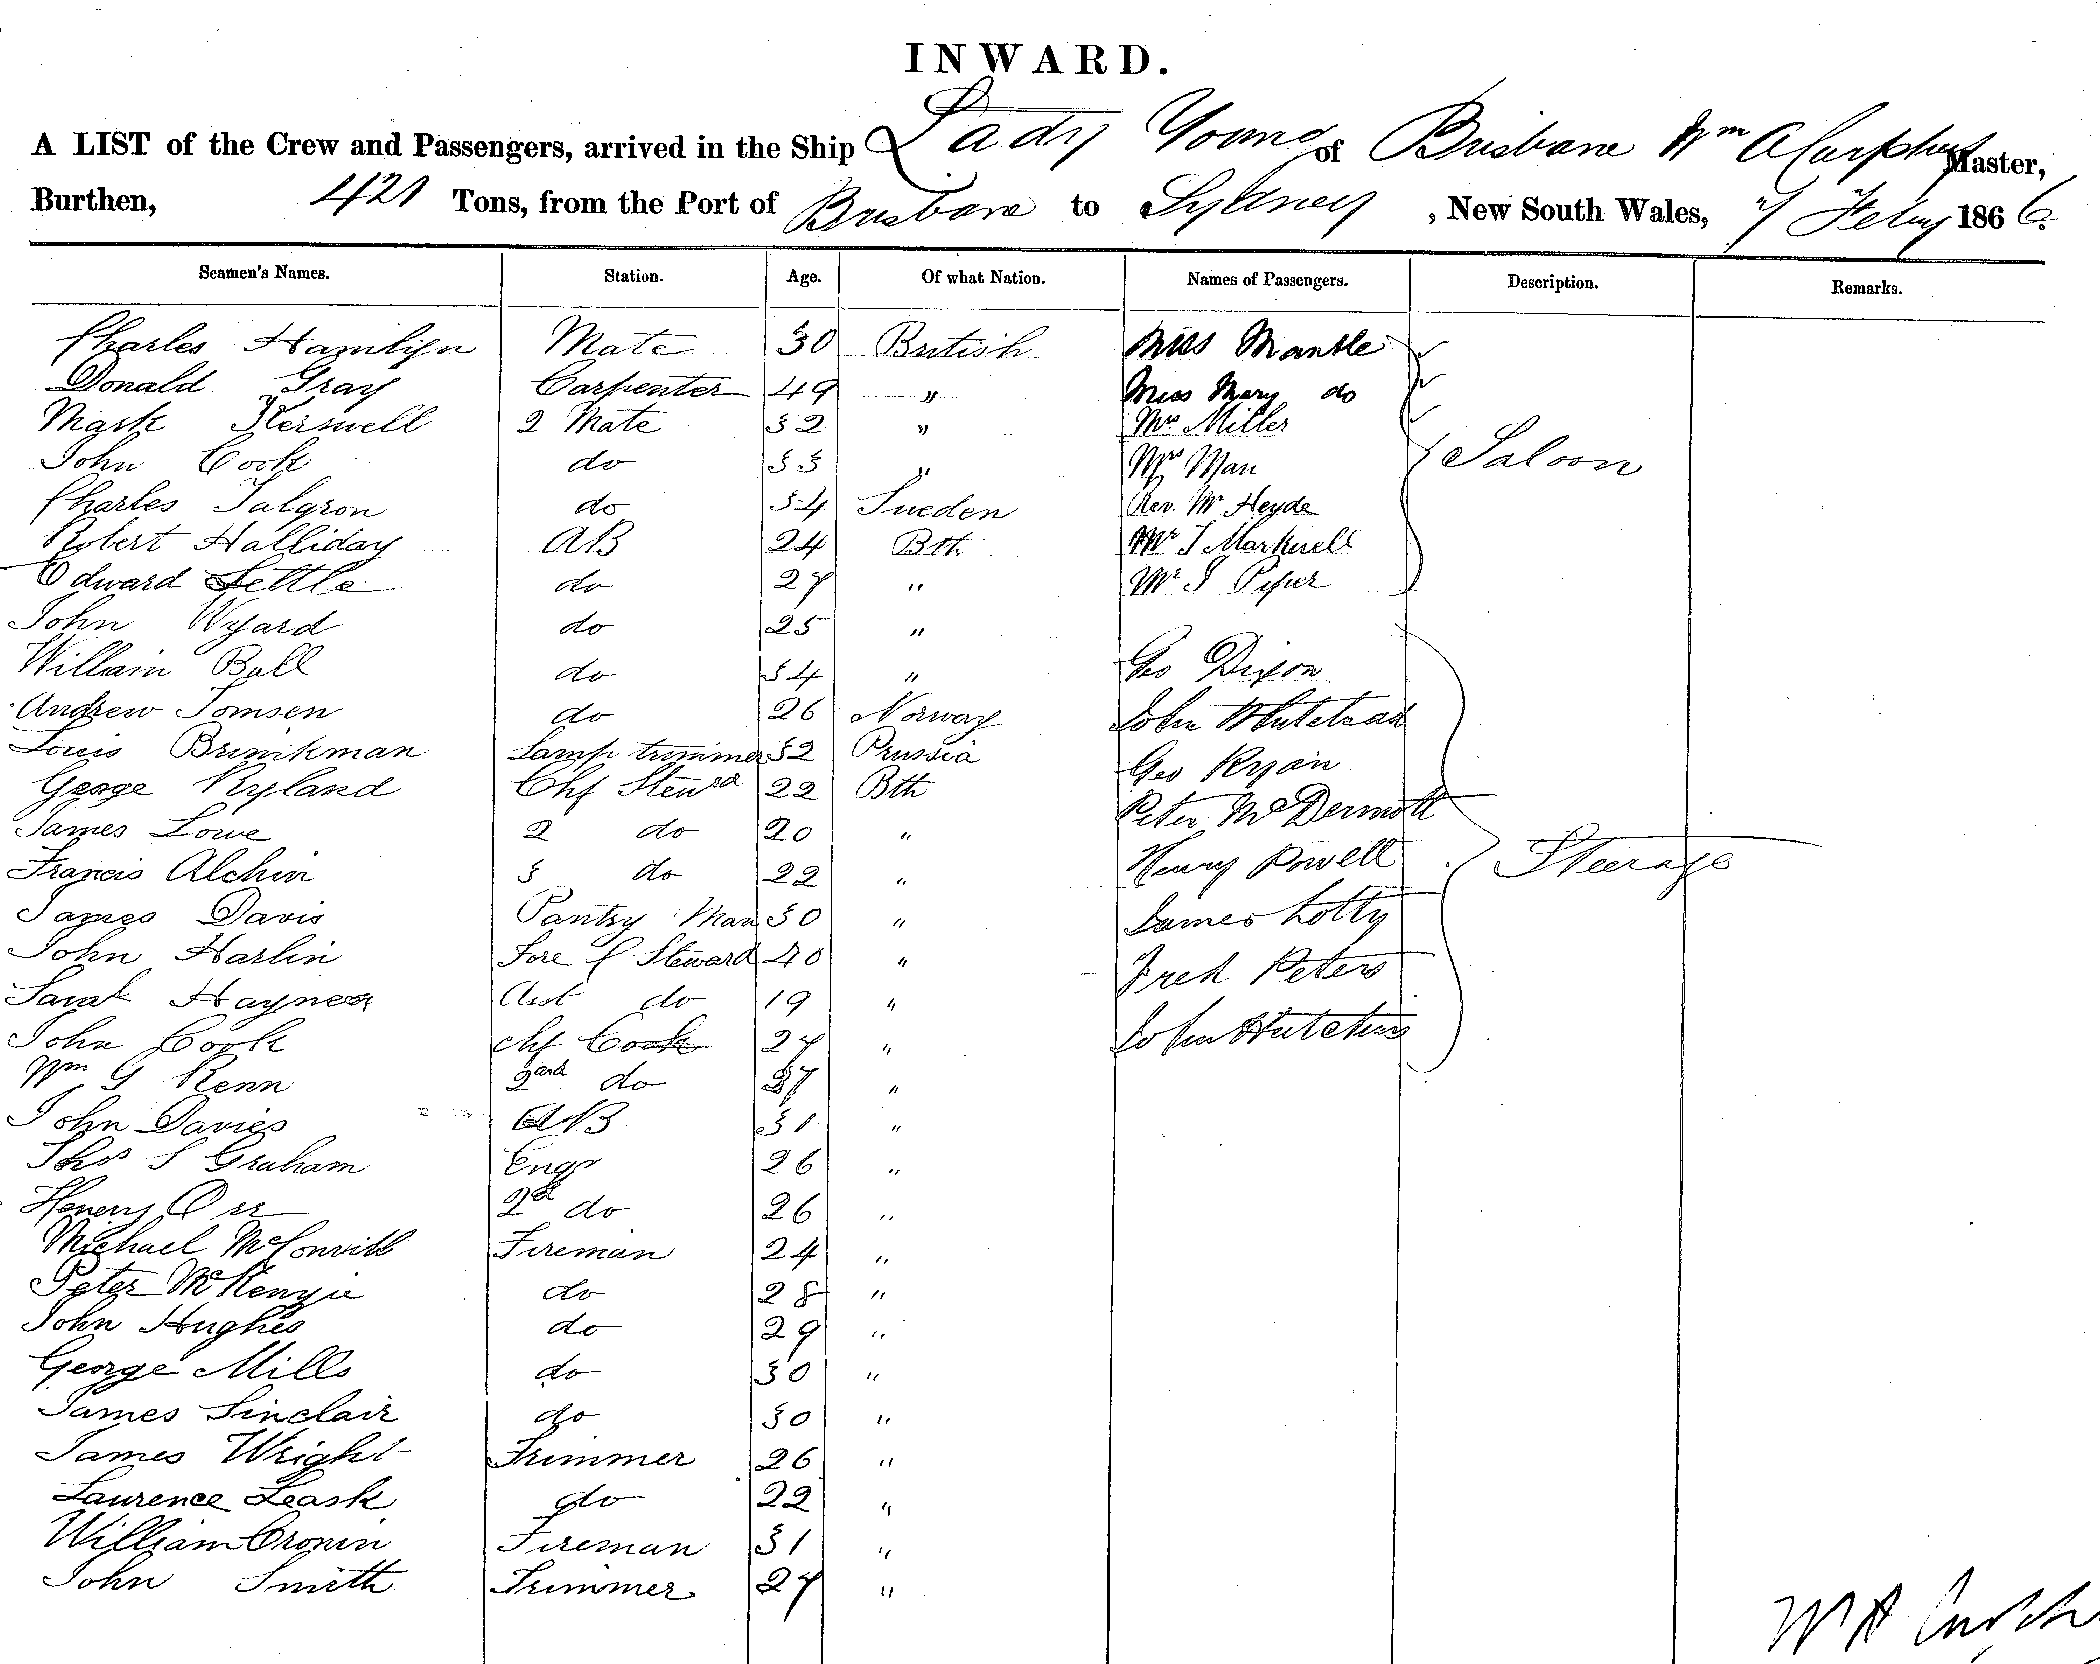 INWARD.
A LIST of the Crew and Passengers, arrived in the Ship Lady Young of Brisbane Wm A Curphey Master,
Burthen, 421 Tons, from the Port of Brisbane to Sydney, New South Wales, 7 Feby 1866.
Seamen's Names. Station. Age. Of what Nation. Names of Passengers. Description. Remarks.
Charles Hamlyn Mate 30 British Miss Mantle
Donald Gray Carpenter 49 " Miss Mary do
Mark Kerswell 2 Mate 32 " Mrs Miller
John Cook do 33 " Mrs Man Saloon
Charles Salgron do 34 Sueden Rev. Mr Heyde
Robert Halliday AB 24 Bth Mr J Markwell
Edward Settle do 27 " Mr J Piper
John Wyard do 25 "
William Ball do 34 " Geo Dixon
Andrew Tomsen do 26 Norway John Whitehead
Louis Brinkman Lamp trimmer 32 Prussia Geo Ryan
George Ryland Chf Stewd 22 Bth Peter McDermott
James Lowe 2 do 20 "
Francis Alchin 3 do 22 " Henry Powell Steerage
James Davis Pantry Man 30 " James Lotty
John Harlin Fore C Steward 40 " Fred Peters
Sarah Haynes Asst do 19 "
John Cook chf Cook 27 " John Hutchins
Wm G Kenn 2nd do 37 "
John Davies AB 31 "
Thos S Graham Engr 26 "
Henery Orr 2d do 26 "
Michael McConvill Fireman 24 "
Peter McKenzie do 28 "
John Hughes do 29 "
George Mills do 30 "
James Sinclair do 30 "
James Wright Trimmer 26 "
Laurence Leask do 22 "
William Cronin Fireman 31 "
John Smith Trimmer 27 "
W A Curphey